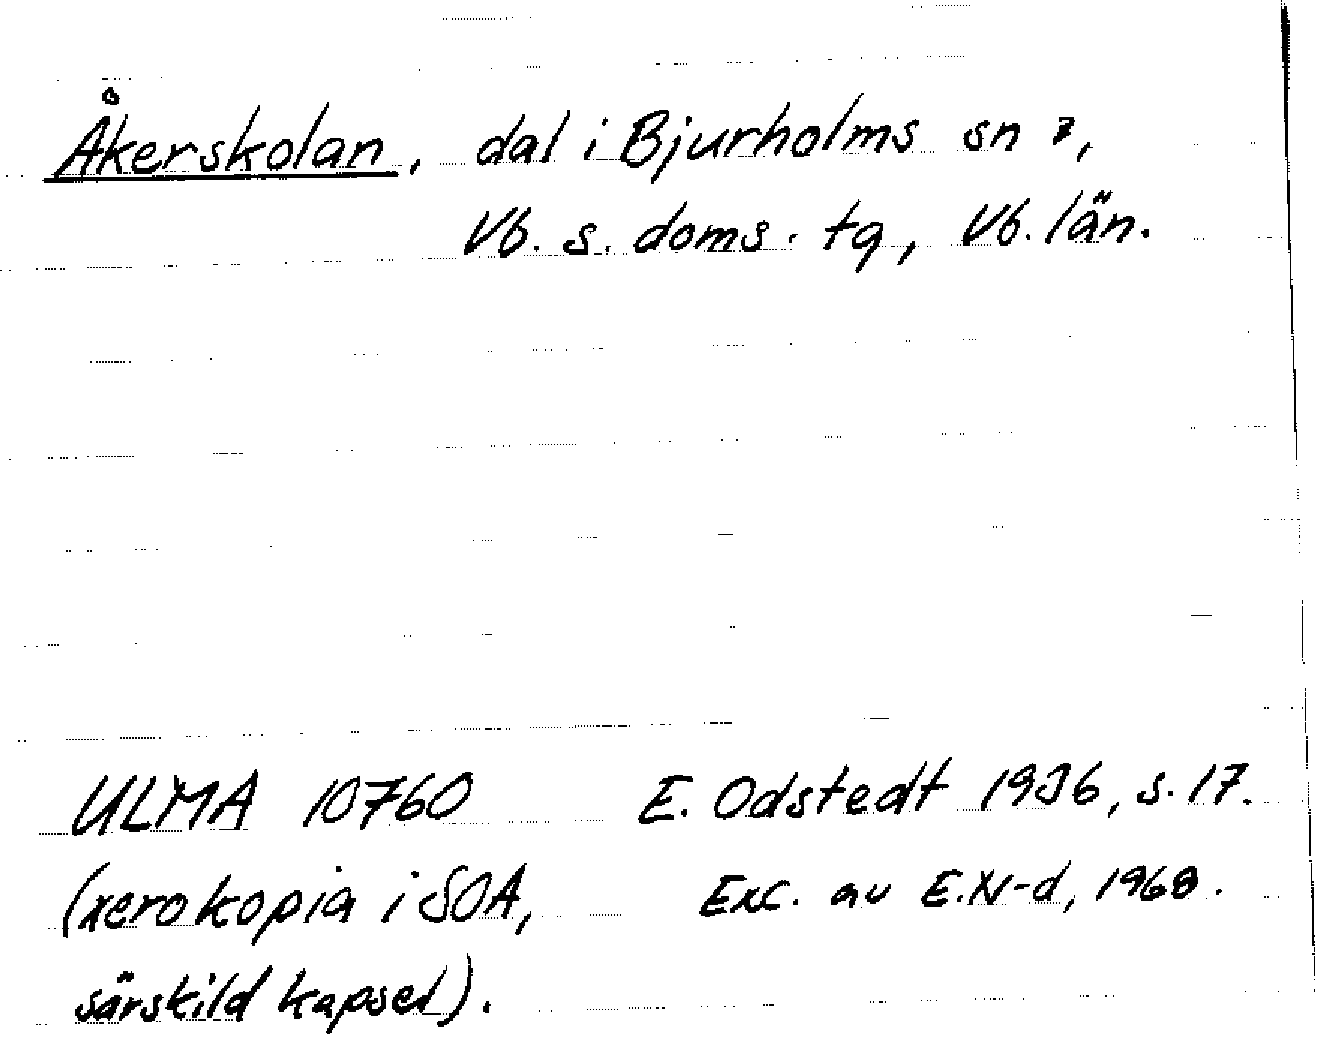 Åkerskolan, dal i Bjurholms sn ?,
Vb. s. doms. tg, Vb. län.
ULMA 10760 E. Odstedt 1936, s. 17.
(xerokopia i SOA, Exc. av E.N-d, 1968.
särskild kapsel).